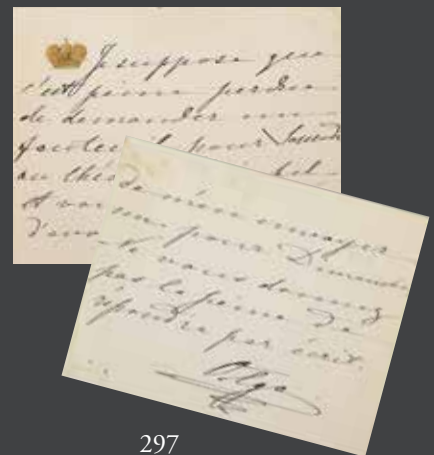 Je suppose que
c'est peine perdue
de demander un
fauteuil pour Samedi
au théâ
d'avo
m'en envoyer
un pour Dimanche
Ne vous donnez
pas la peine de
répondre par écrit.
Olga
297